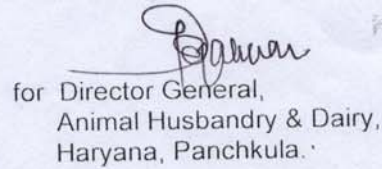 for Director General,
Animal Husbandry & Dairy,
Haryana, Panchkula.